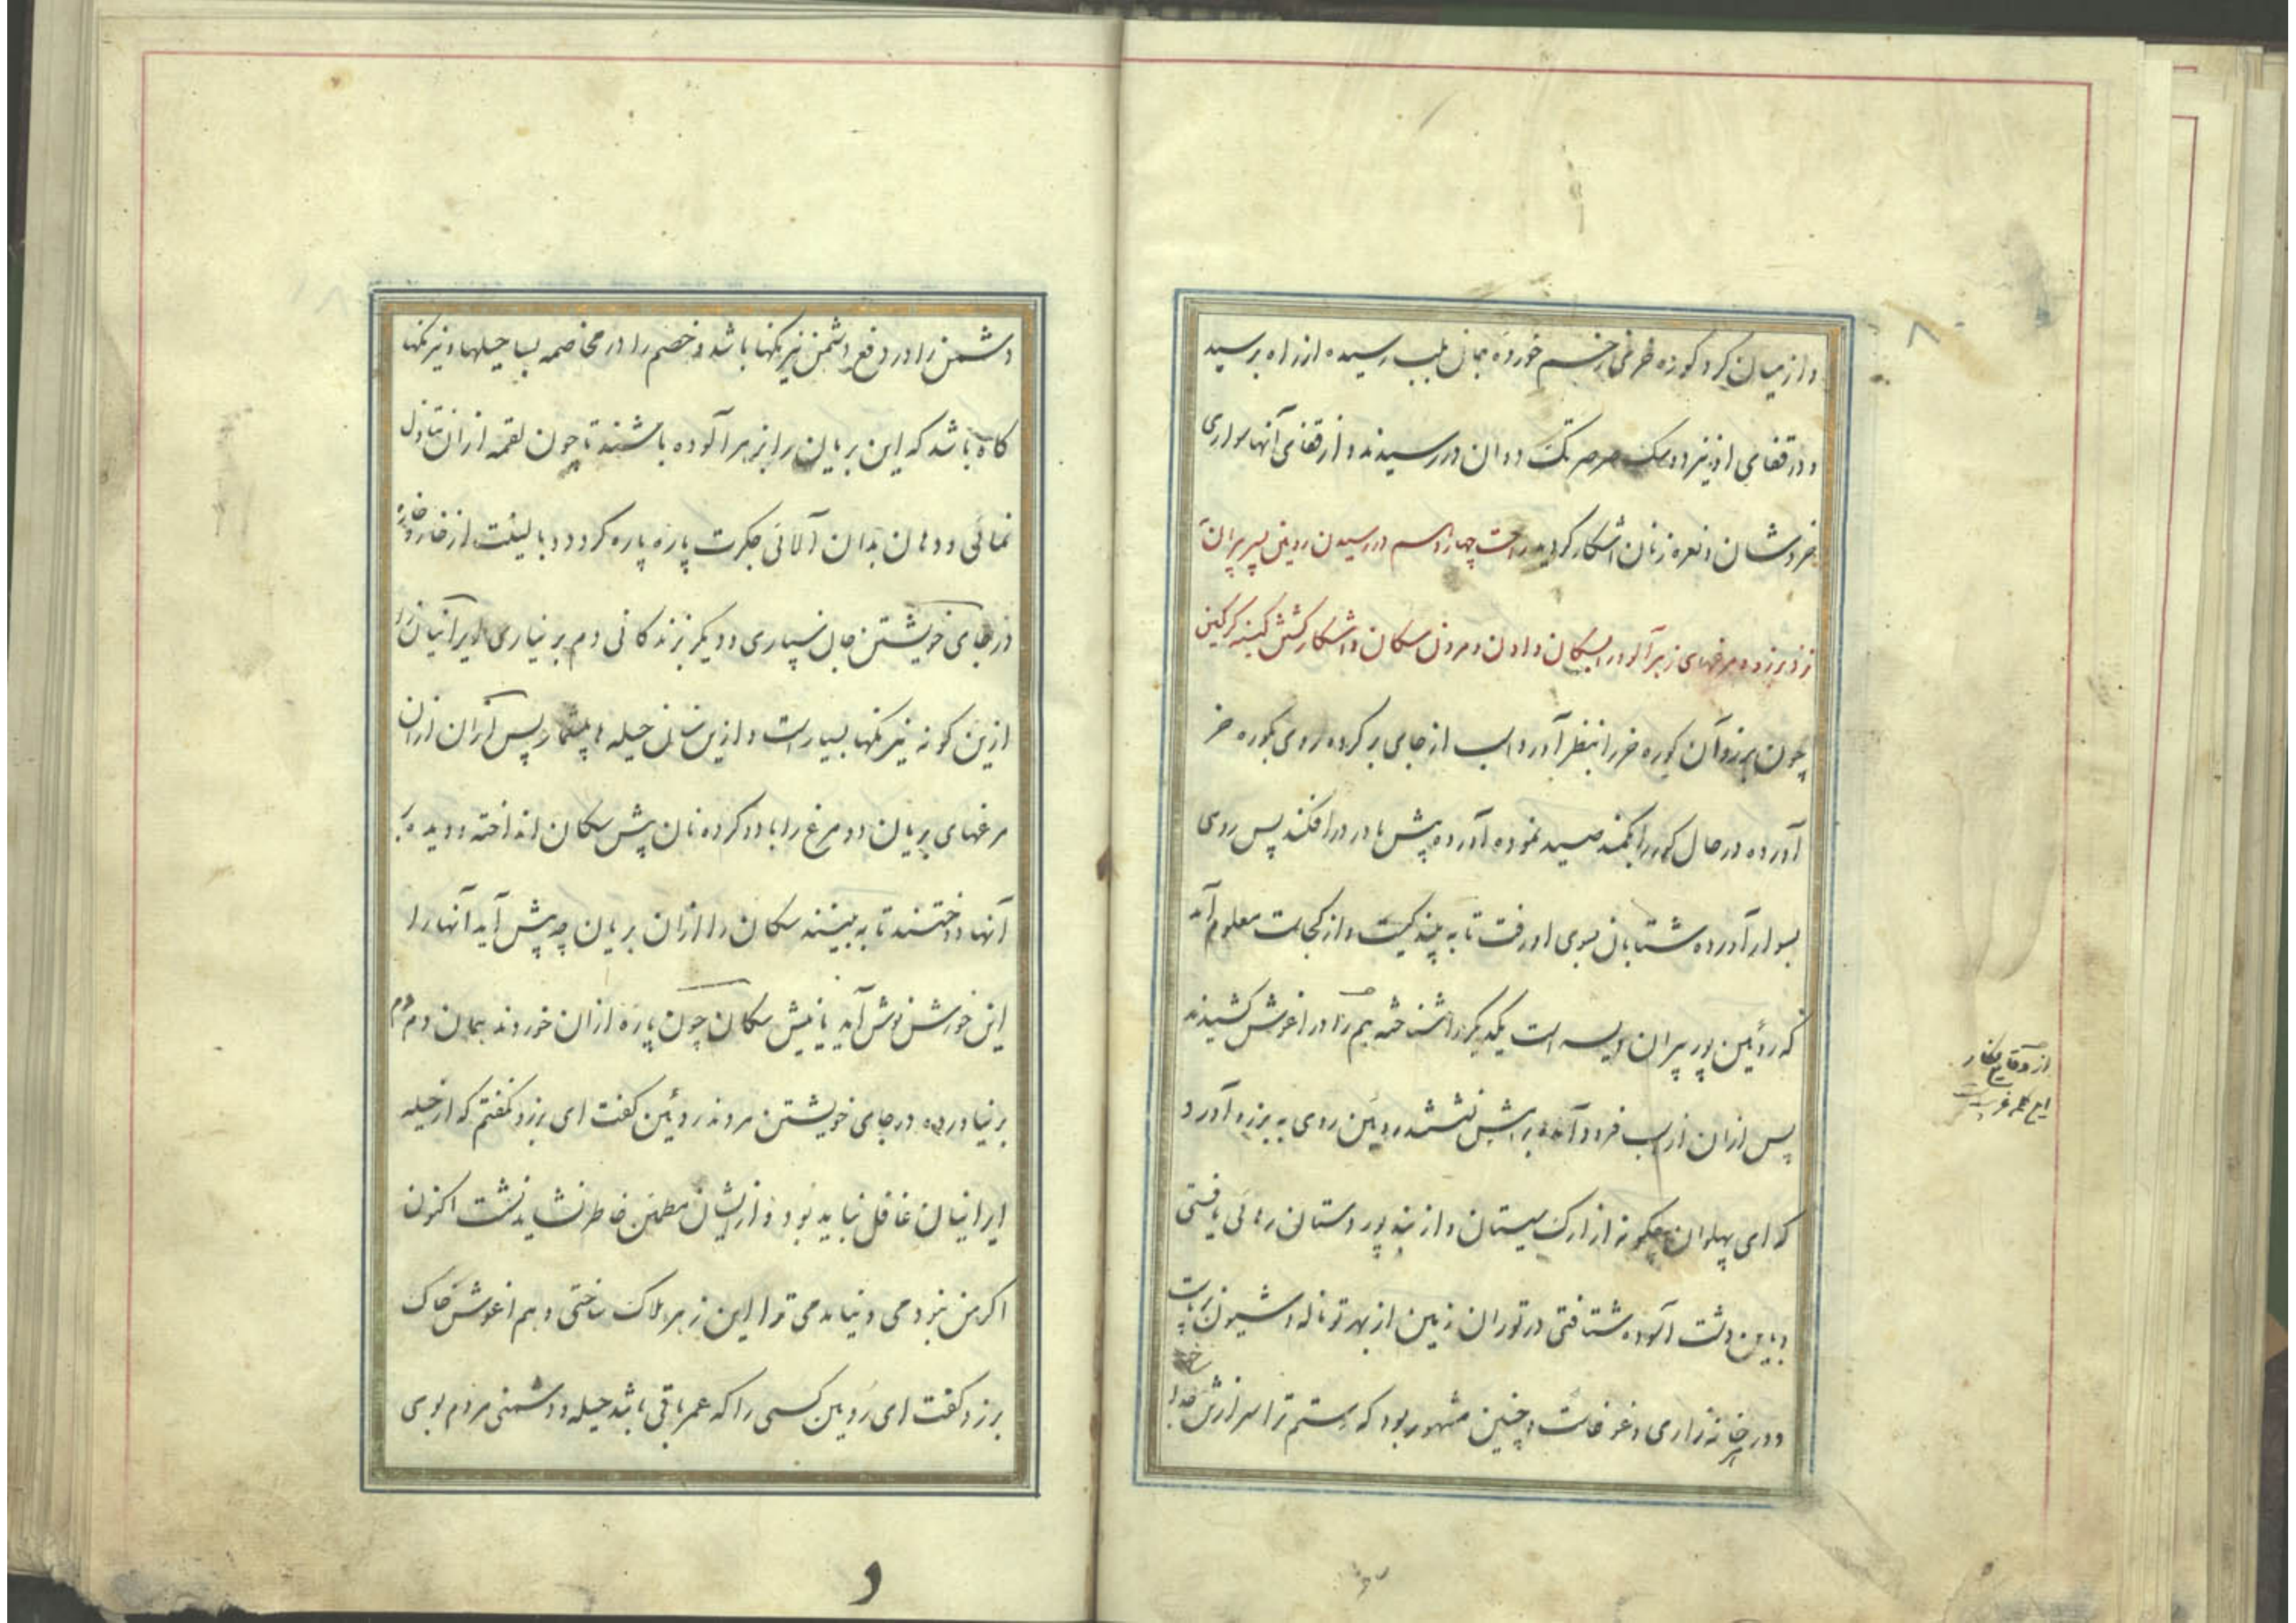 و از میان کرد کوره خری زخم خورده بمان بلب رسیده از راه برسید
و در قفای او نیز دو سک صرصر تک دوان در رسیدند و از قفای آنها سواری
خروشان و نعره زنان آشکار کردید در سیدن روئین پسر پیران
نزد برزو و مرغهای زهرآلود را بسکان دادن و مردن سکان و آشکار کینه کرکین
چون برزو آن کوره خر را بنظر آورد اسب از جای بر کرده روی بکوره خر
آورده در حال کور را بکمند صید نموده آورده پیش مادر در افکند پس روی
بسوار آورده شتابان بسوی او رفت تا به بیند کیست و از کجاست معلوم آمد
که روئین پور پیران ویسه است یکدیکر را شناخته هم را در آغوش کشیدند
پس از آن از اسب فرود آمده برامش نشستند روئین روی به برزو آورد
که ای پهلوان چکونه از ارک سیستان و از بند پور دستان رهائی یافتی
و باین دشت آسوده شتافتی در توران زمین از بهر تو ناله و شیون برپاست
و در هر خانه زاری و غوغاست و چنین مشهور بود که رستم ترا سر از تن جدا
دشمن را در دفع دشمن نیرنکها باشد و خصم را در مخاصمه بسا حیلها و نیرنکها
کاه باشد که این بریان را بزهر آلوده باشند تا چون لقمه از آن تناول
نمائی و دهان بدان آلائی جکرت پاره پاره کردد و بالینت از خار و خاره
در جای خویشتن جان سپاری و دیکر بزندکانی دم بر نیاری ایرانیان را
ازین کونه نیرنکها بسیار است و ازین سان حیله ها بیشمار پس آنان از آن
مرغهای بریان دو مرغ را با دو کرده نان پیش سکان انداخته و دیده بر
آنها دوختند تا به بینند سکان را از آن بریان چه پیش آید آنها را
این خورش نوش آید یا نیش سکان چون پاره از آن خوردند بمان دم دم
بر نیاورده در جای خویشتن مردند روئین کفت ای برزو نکفتم که از حیله
ایرانیان غافل نباید بود و از ایشان مطمئن خاطر نشاید نشت اکنون
اکر من نبودمی و نیامدمی ترا این زهر هلاک ساختی و هم آغوش خاک
برزو کفت ای روئین کسی را که عمر باقی باشد حیله و دشمنی مردم بوی